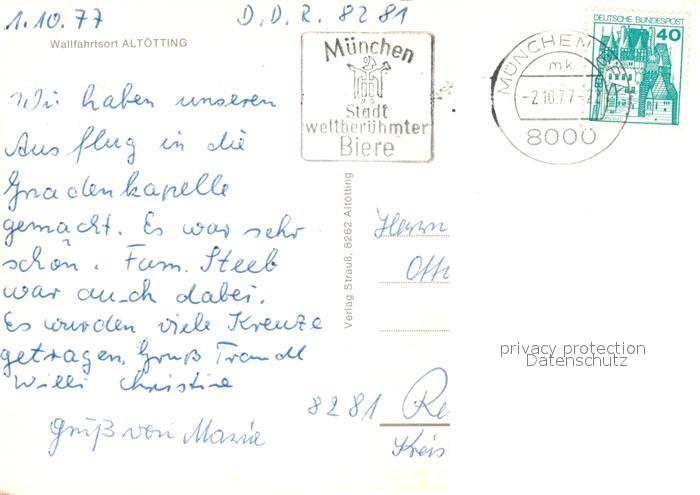 1.10.77
D.D.R. 8281
Wallfahrtsort ALTÖTTING
München
Stadt
weltberühmter
Biere
MÜNCHEN
mk
-2.10.77-
8000
DEUTSCHE BUNDESPOST
40
Wir haben unseren
Ausflug in die
Gnadenkapelle
gemacht. Es war sehr
schön. Fam. Steeb
war auch dabei.
Es wurden viele Kreuze
getragen, Gruß Traudl
Willi Christine
Gruß von Maria
Verlag Strauß, 8262 Altötting
Herrn
Otto
8281 Re
Kreis
privacy protection
Datenschutz